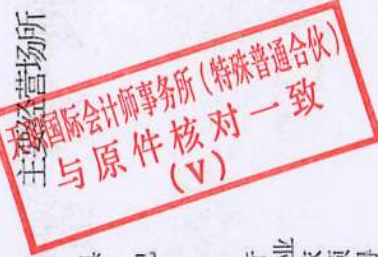 主要经营场所
天职国际会计师事务所(特殊普通合伙)
与原件核对一致
(V)